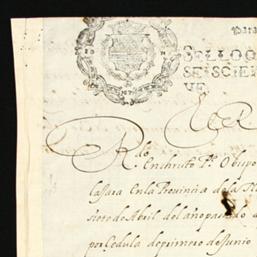 Para
SELLOQ
SEISCIEN
VE
Rdo
En christo Pe Obispo
Casara En la Provincia de la N
siete de Abril del año pasado d
por Cedula de primero de Junio